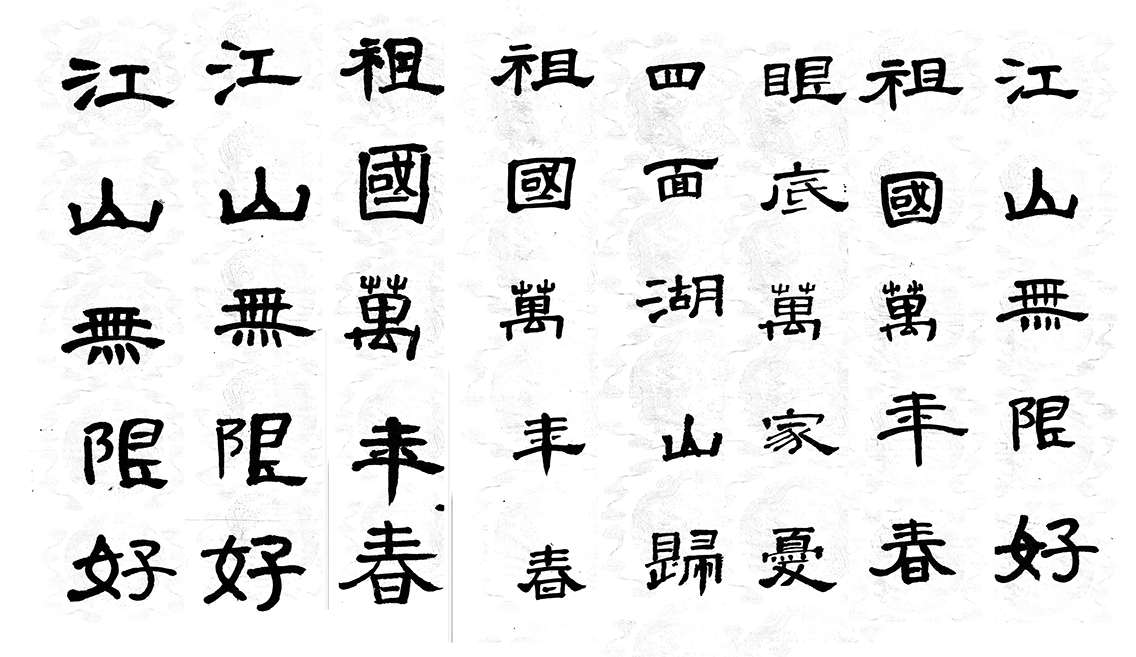 江山無限好
江山無限好
祖國萬年春
祖國萬年春
四面湖山歸
眼底萬家憂
祖國萬年春
江山無限好